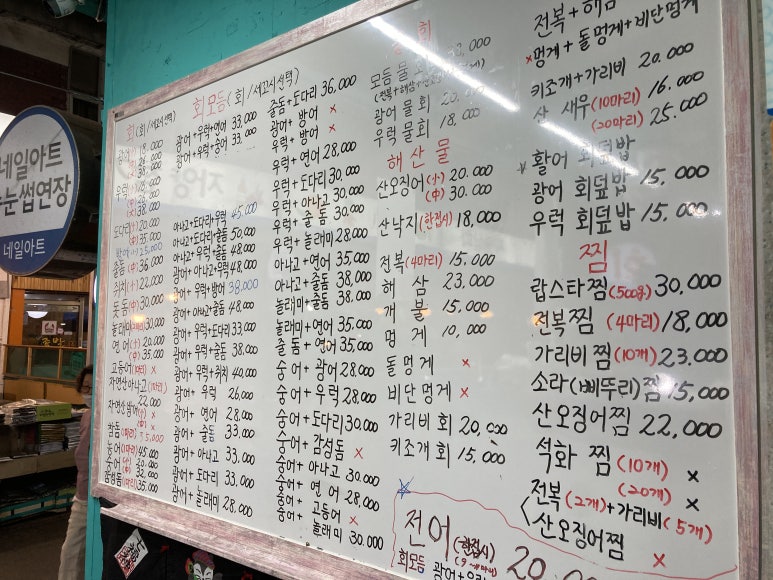 네일아트
눈썹연장
네일아트
회 (회/세고시선택)
광어 18,000
38,000
우럭
38,000
도다리(小) 20,000
(中) 35,000
줄돔(中) 36,000
쥐치(中)
돗돔(中) 30,000
놀래미 30,000
연어(小) 20,000
(中) 35,000
고등어
자연산아나고
22,000
자연산방어
참돔 35,000
농어 45,000
숭어 30,000
35,000
회모듬 (회/세고시선택)
광어+우럭+연어 33,000
광어+우럭+숭어 33,000
아나고+도다리+우럭 45,000
아나고+도다리+줄돔 50,000
아나고+우럭+줄돔 48,000
광어+아나고+우럭 48,000
광어+우럭+방어 38,000
아나고+우럭+줄돔 48,000
광어+우럭+도다리 33,000
광어+우럭+줄돔 38,000
광어+우럭+쥐치 40,000
광어+우럭 26,000
광어+연어 28,000
광어+줄돔 33,000
광어+아나고 33,000
광어+도다리 33,000
광어+놀래미 28,000
줄돔+도다리 36,000
광어+방어 x
우럭+방어 x
우럭+연어 28,000
우럭+도다리 30,000
우럭+아나고 30,000
우럭+줄돔 30,000
우럭+놀래미 28,000
아나고+연어 35,000
아나고+줄돔 38,000
놀래미+줄돔 38,000
놀래미+연어 35,000
줄돔+연어 35,000
숭어+광어 28,000
숭어+우럭 28,000
숭어+도다리 30,000
숭어+감성돔 x
숭어+아나고 30,000
숭어+연어 28,000
숭어+고등어 x
숭어+놀래미 30,000
회
모듬물회
광어물회 20,000
우럭물회 18,000
해산물
산오징어(小) 20,000
(中) 30,000
산낙지(한접시) 18,000
전복(4마리) 15,000
해삼 23,000
개불 15,000
멍게 10,000
돌멍게 x
비단멍게 x
가리비회 20,000
키조개회 15,000
전어(한접시) 20,
회모듬 광어+우럭
전복+해삼
*멍게+돌멍게+비단멍게
키조개+가리비 20,000
산 새우(10마리) 16,000
(20마리) 25,000
*활어 회덮밥
광어 회덮밥 15,000
우럭 회덮밥 15,000
찜
랍스타찜(500g) 30,000
전복찜(4마리) 18,000
가리비찜(10개) 23,000
소라(삐뚜리)찜 15,000
산오징어찜 22,000
석화찜(10개) x
(20개) x
전복(2개)+가리비(5개)
산오징어찜 x